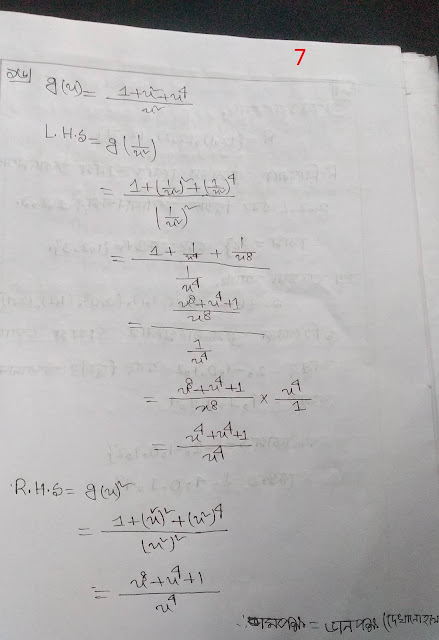 7
g(x) = (1+x²+x⁴)/x²
L.H.S = g(1/x²)
= (1+(1/x²)²+(1/x²)⁴)/(1/x²)²
= (1 + 1/x⁴ + 1/x⁸)/(1/x⁴)
= ((x⁸+x⁴+1)/x⁸)/(1/x⁴)
= (x⁸+x⁴+1)/x⁸ × x⁴/1
= (x⁴+x⁴+1)/x⁴
R.H.S = g(x)²
= (1+(x²)²+(x²)⁴)/(x²)²
= (x⁸+x⁴+1)/x⁴
∴ বামপক্ষ = ডানপক্ষ